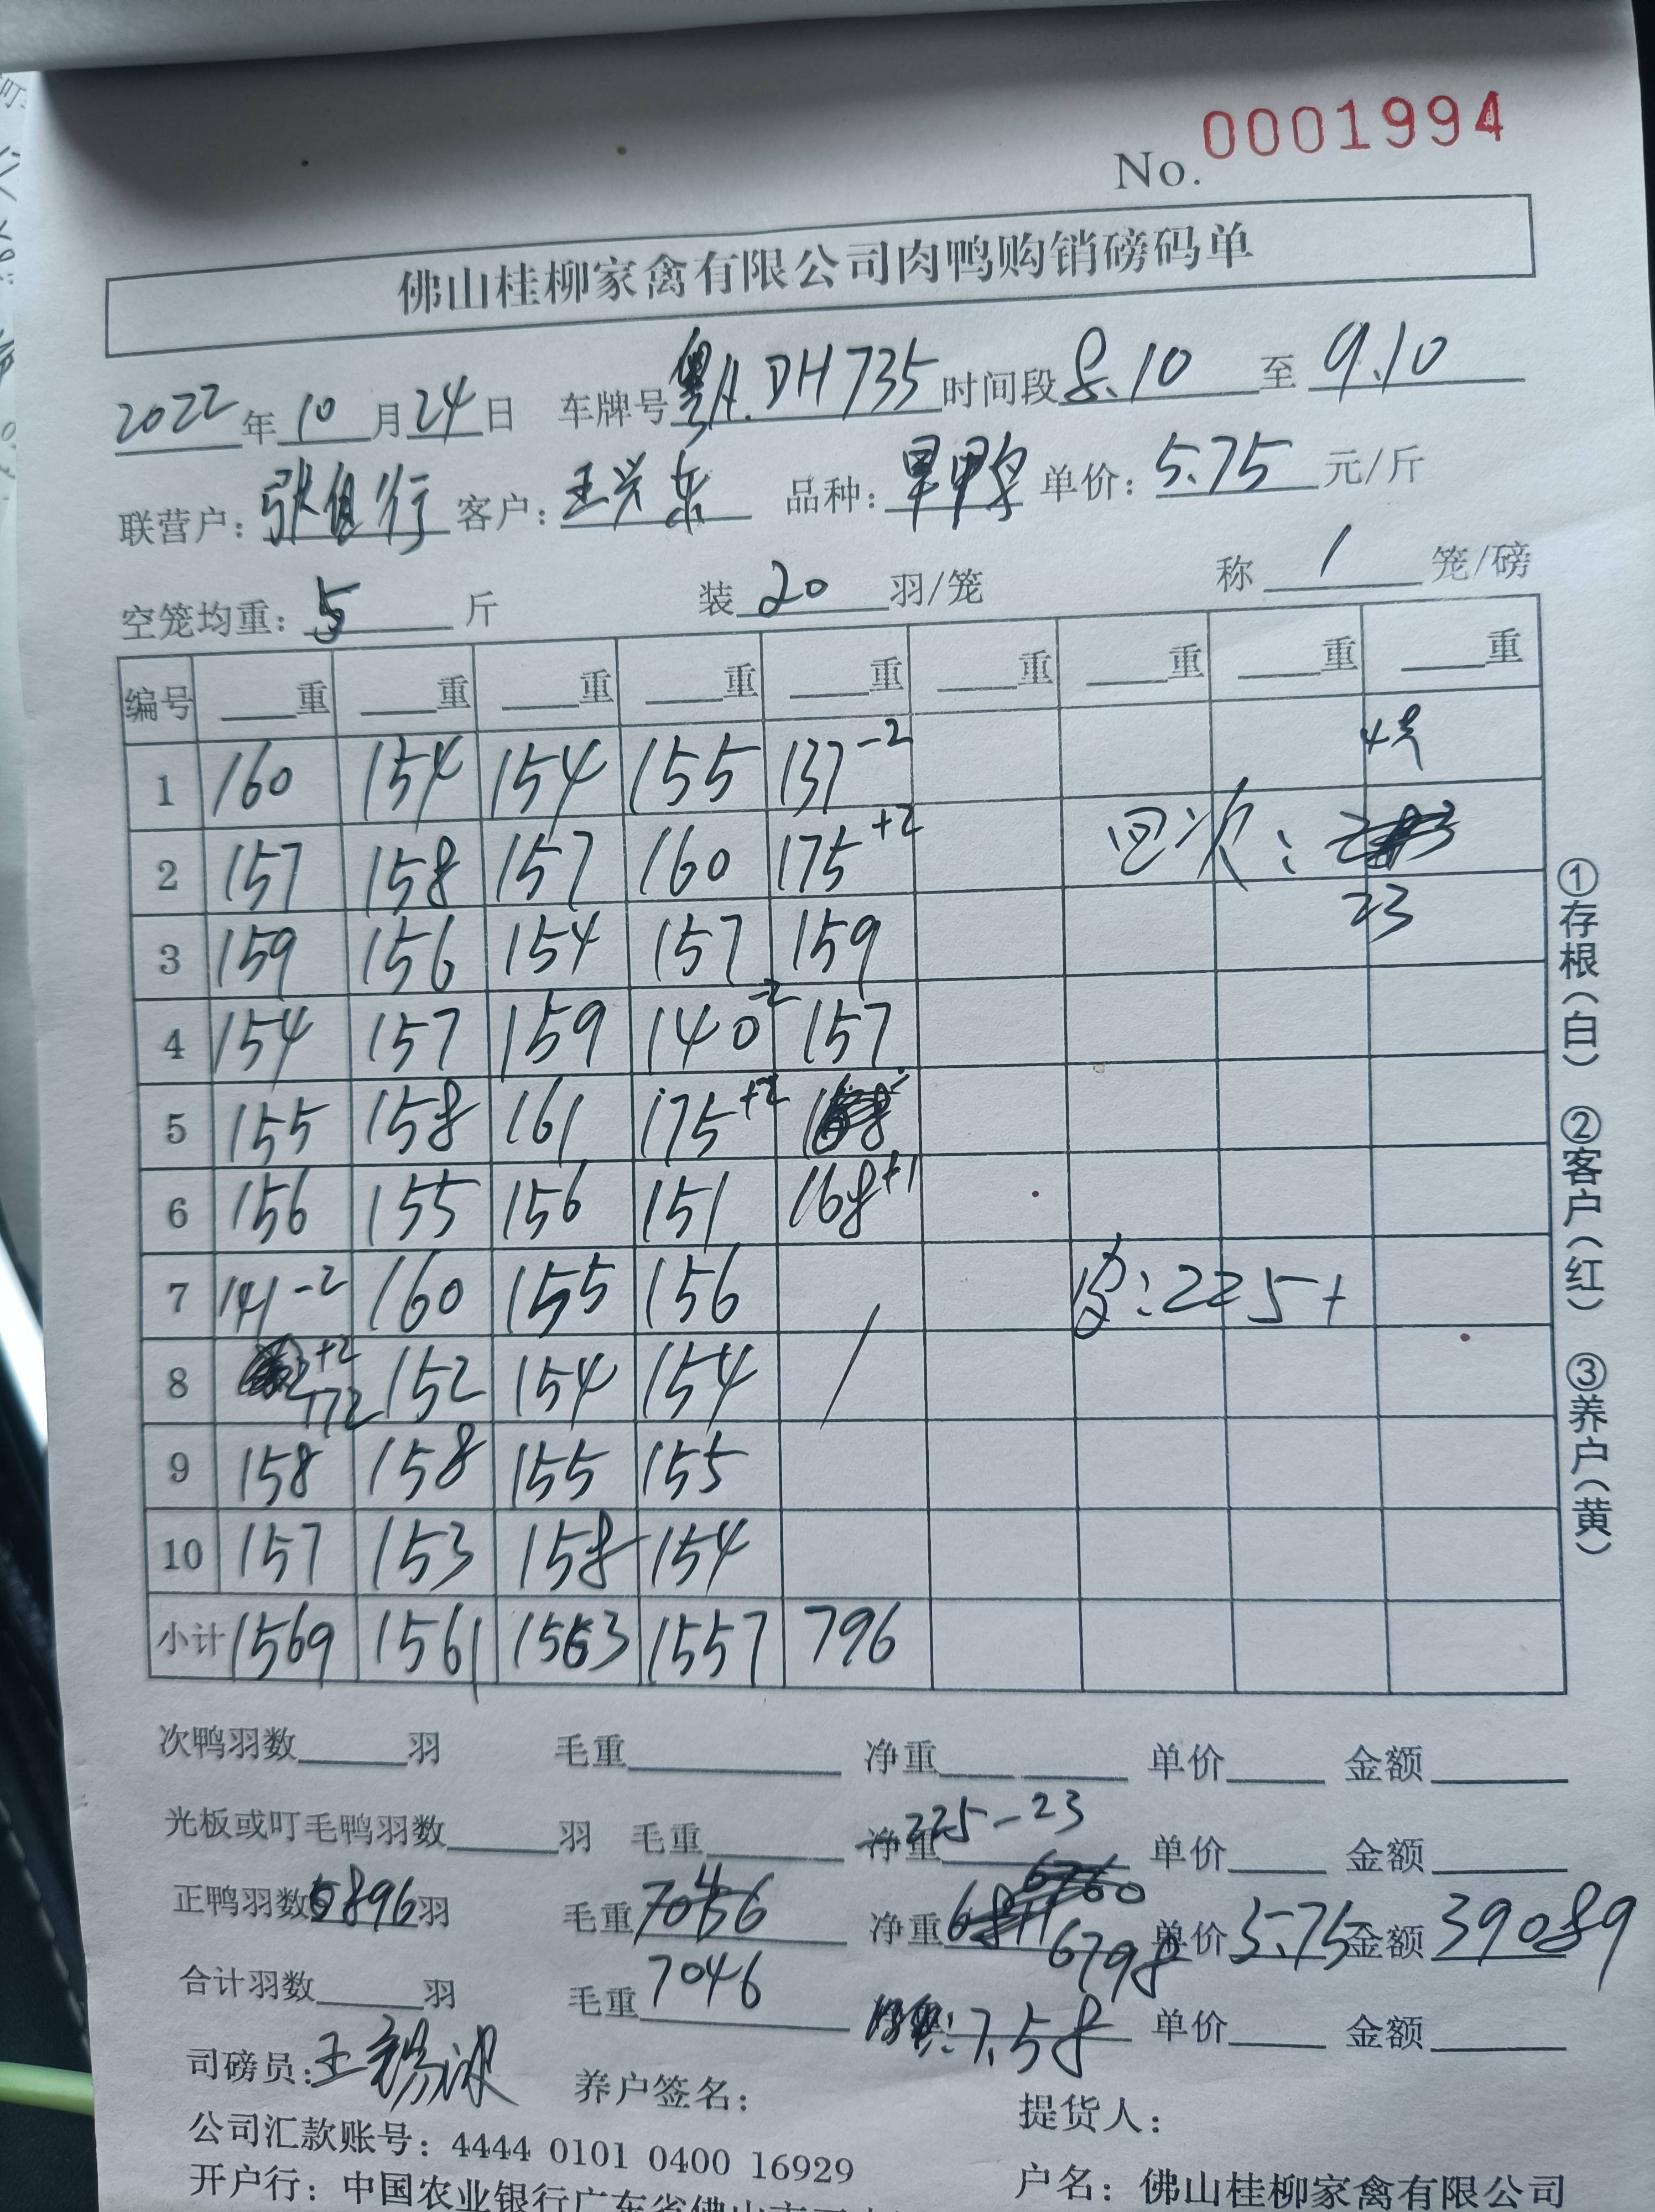 No. 0001994
佛山桂柳家禽有限公司肉鸭购销磅码单
2022年10月24日 车牌号粤A.DH735时间段8.10至9.10
联营户: 客户:王兴东 品种: 单价:5.75元/斤
空笼均重:5斤 装20羽/笼 称1笼/磅
编号 重 重 重 重 重 重 重 重 重
1 160 154 154 155 137-2
2 157 158 157 160 175+2 回次:
23
3 159 156 154 157 159
4 154 157 159 140-2 157
5 155 158 161 175+2
6 156 155 156 151 168+1
7 141-2 160 155 156 皮:225+
8 +2 172 152 154 154 /
9 158 158 155 155
10 157 153 158 154
小计 1569 1561 1563 1557 796
①存根(白) ②客户(红) ③养户(黄)
次鸭羽数 羽 毛重 净重 单价 金额
光板或叮毛鸭羽数 羽 毛重 净重 225-23 单价 金额
正鸭羽数 896羽 毛重 净重 6798 单价5.75金额39089
合计羽数 羽 毛重7046 :7.58 单价 金额
司磅员:王 养户签名: 提货人:
公司汇款账号:4444 0101 0400 16929
开户行:中国农业银行广东省佛山市 户名:佛山桂柳家禽有限公司